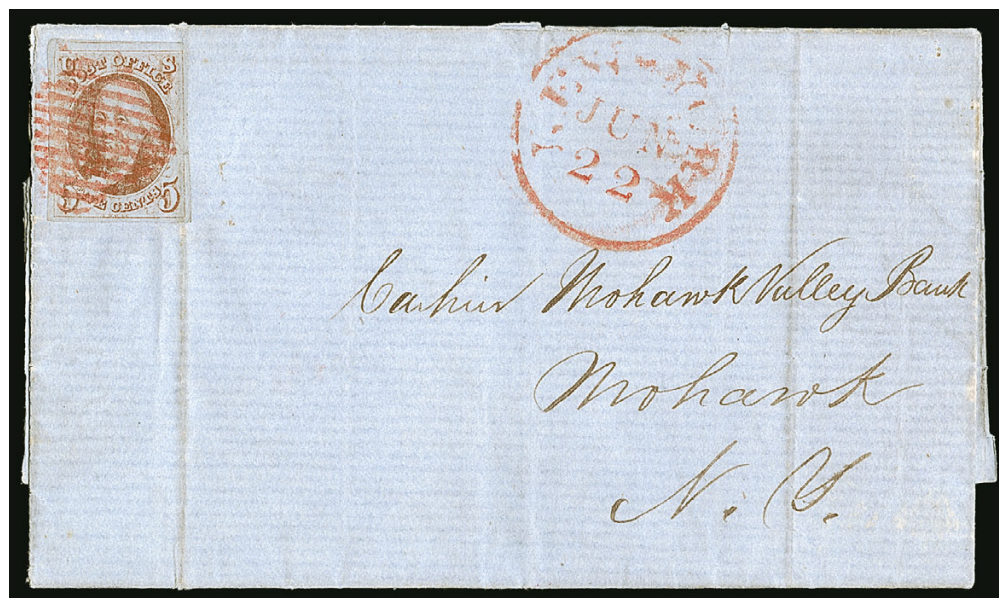 U S
POST OFFICE
FIVE CENTS
5 5
NEW-YORK
JUN
22
Cashier Mohawk Valley Bank
Mohawk
N. Y.